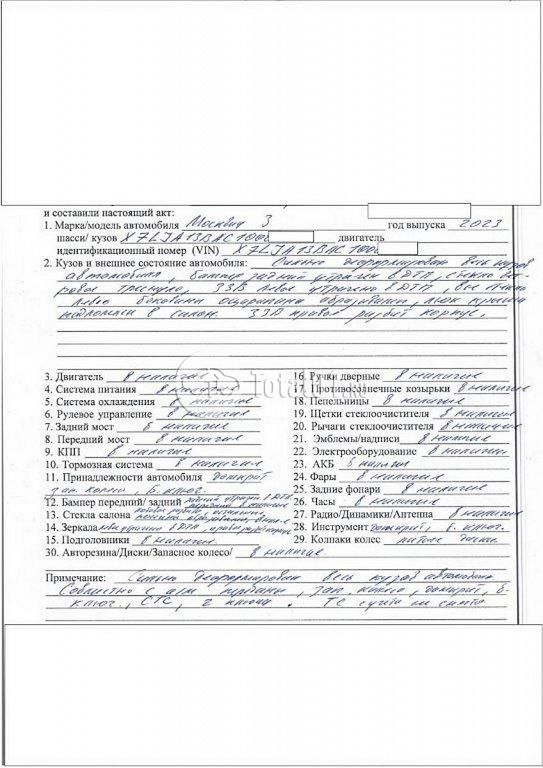 и составили настоящий акт:
1. Марка/модель автомобиля Москвич 3 год выпуска 2023
шасси/ кузов X7LJA13BAC100 двигатель
идентификационный номер (VIN) X7LJA13BAC100
2. Кузов и внешнее состояние автомобиля: Сильно деформирован весь кузов
автомобиля, бампер задний утрачен в ДТП, стекло
треснуто, ЗЗВ левое утрачено в ДТП, вся
боковина оцарапана люк крыши
в салон. ЗЗВ правое разбит корпус.
TotalBit
3. Двигатель в наличие
4. Система питания в наличие
5. Система охлаждения в наличие
6. Рулевое управление в наличие
7. Задний мост в наличие
8. Передний мост в наличие
9. КПП в наличие
10. Тормозная система в наличие
11. Принадлежности автомобиля домкрат
зап. колесо, б. ключ.
12. Бампер передний/ задний задний утрачен в ДТП
передний в наличие
13. Стекла салона
14. Зеркала левое утрачено в ДТП, правое разбит корпус
15. Подголовники в наличие
16. Ручки дверные в наличие
17. Противосолнечные козырьки в наличие
18. Пепельницы в наличие
19. Щетки стеклоочистителя в наличие
20. Рычаги стеклоочистителя в наличие
21. Эмблемы/надписи в наличие
22. Электрооборудование в наличие
23. АКБ в наличие
24. Фары в наличие
25. Задние фонари в наличие
26. Часы в наличие
27. Радио/Динамики/Антенна в наличие
28. Инструмент домкрат, б. ключ.
29. Колпаки колес литые диски.
30. Авторезина/Диски/Запасное колесо/ в наличие
Примечание: Сильно деформирован весь кузов автомобиля
Совместно с а/м зап. колесо, домкрат, б-
ключ., СТС, 2 ключа. ТС с учёта не снято